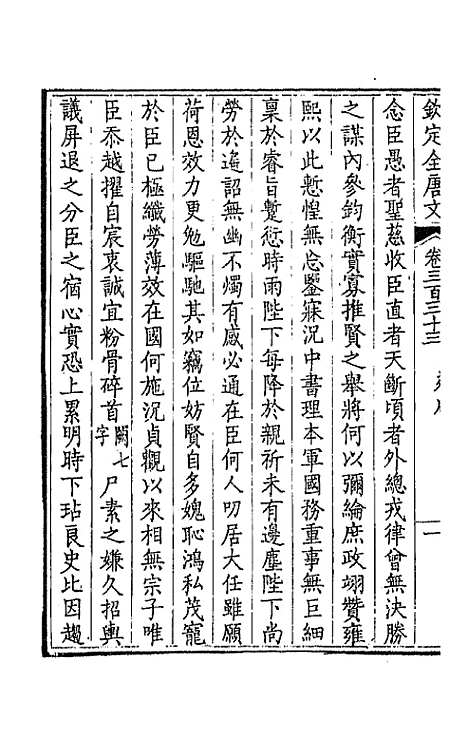 欽定全唐文
卷三百三十三
一
念臣愚者聖慈收臣直者天斷頃者外總戎律曾無決勝
之謀內參鈞衡實寡推賢之舉將何以彌綸庶政翊贊雍
熙以此慙惶無忘鑒寐況中書理本軍國務重事無巨細
稟於睿旨蹔愆時雨陛下每降於親祈未有邊塵陛下尚
勞於遙詔無幽不燭有感必通在臣何人叨居大任雖願
荷恩效力更勉驅馳其如竊位妨賢自多媿恥鴻私茂寵
於臣已極纖勞薄效在國何施況貞觀以來相無宗子唯
臣忝越擢自宸衷誠宜粉骨碎首闕七字尸素之嫌久招輿
議屏退之分臣之宿心實恐上累明時下玷良史比因趨